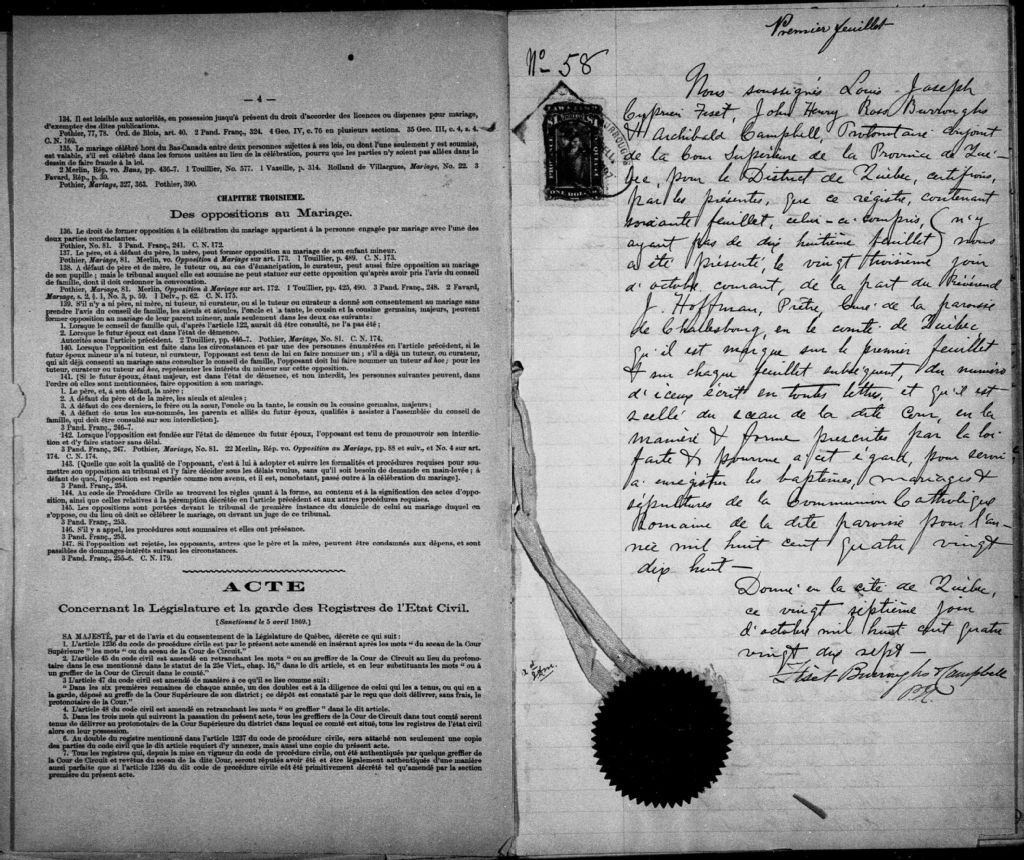 — 4 —
134. Il est loisible aux autorités, en possession jusqu'à présent du droit d'accorder des licences ou dispenses pour mariage,
d'exempter des dites publications.
Pothier, 77, 78. Ord. de Blois, art. 40. 2 Pand. Franç., 324. 4 Geo. IV, c. 76 en plusieurs sections. 35 Geo. III, c. 4, s. 4.
C. N. 169.
135. Le mariage célébré hors du Bas-Canada entre deux personnes sujettes à ses lois, ou dont l'une seulement y est soumise,
est valable, s'il est célébré dans les formes usitées au lieu de la célébration, pourvu que les parties n'y soient pas allées dans le
dessin de faire fraude à la loi.
2 Merlin, Rép. vo. Bans, pp. 436-7. 1 Toullier, No. 577. 1 Vazeille, p. 314. Rolland de Villargues, Mariage, No. 22. 3
Favard, Rép., p. 30.
Pothier, Mariage, 327, 363. Pothier, 390.
CHAPITRE TROISIEME.
Des oppositions au Mariage.
136. Le droit de former opposition à la célébration du mariage appartient à la personne engagée par mariage avec l'une des
deux parties contractantes.
Pothier, No. 81. 3 Pand. Franç., 241. C. N. 172.
137. Le père, et à défaut du père, la mère, peut former opposition au mariage de son enfant mineur.
Pothier, Mariage, 81. Merlin, vo. Opposition à Mariage sur art. 173. 1 Toullier, p. 489. C. N. 173.
138. A défaut de père et de mère, le tuteur ou, au cas d'émancipation, le curateur, peut aussi faire opposition au mariage
de son pupille; mais le tribunal auquel elle est soumise ne peut statuer sur cette opposition qu'après avoir pris l'avis du conseil
de famille, dont il doit ordonner la convocation.
Pothier, Mariage, 81. Merlin, Opposition à Mariage sur art. 172. 1 Toullier, pp. 425, 490. 3 Pand. Franç., 248. 2 Favard,
Maryage, s. 2, §. 1, No. 3, p. 59. 1 Delv., p. 62. C. N. 175.
139. S'il n'y a ni père, ni mère, ni tuteur, ni curateur, ou si le tuteur ou curateur a donné son consentement au mariage sans
prendre l'avis du conseil de famille, les aïeuls et aïeules, l'oncle et la tante, le cousin et la cousine germains, majeurs, peuvent
former opposition au mariage de leur parent mineur, mais seulement dans les deux cas suivants:
1. Lorsque le conseil de famille qui, d'après l'article 122, aurait dû être consulté, ne l'a pas été;
2. Lorsque le futur époux est dans l'état de démence.
Autorités sous l'article précédent. 2 Toullier, pp. 446-7. Pothier, Mariage, No. 81. C. N. 174.
140. Lorsque l'opposition est faite dans les circonstances et par une des personnes énumérées en l'article précédent, si le
futur époux mineur n'a ni tuteur, ni curateur, l'opposant est tenu de lui en faire nommer un; s'il a déjà un tuteur, ou curateur,
qui ait déjà consenti au mariage sans consulter le conseil de famille, l'opposant doit lui faire nommer un tuteur ad hoc; pour les
tuteur, curateur ou tuteur ad hoc, représenter les intérêts du mineur sur cette opposition.
141. [Si le futur époux, étant majeur, est dans l'état de démence, et non interdit, les personnes suivantes peuvent, dans
l'ordre où elles sont mentionnées, faire opposition à son mariage.
1. Le père, et, à son défaut, la mère;
2. A défaut du père et de la mère, les aïeuls et aïeules;
3. A défaut de ces derniers, le frère ou la sœur, l'oncle ou la tante, le cousin ou la cousine germains, majeurs;
4. A défaut de tous les sus-nommés, les parents et alliés du futur époux, qualifiés à assister à l'assemblée du conseil de
famille, qui doit être consulté sur son interdiction].
3 Pand. Franç., 246-7.
142. Lorsque l'opposition est fondée sur l'état de démence du futur époux, l'opposant est tenu de promouvoir son interdic-
tion et d'y faire statuer sans délai.
3 Pand. Franç., 247. Pothier, Mariage, No. 81. 22 Merlin, Rép. vo. Opposition à Mariage, pp. 88 et suiv., et No. 4 sur art.
174. C. N. 174.
143. [Quelle que soit la qualité de l'opposant, c'est à lui à adopter et suivre les formalités et procédures requises pour sou-
mettre son opposition au tribunal et l'y faire décider sous les délais voulus, sans qu'il soit besoin de demande en main-levée; à
défaut de quoi, l'opposition est regardée comme non avenue, et il est, nonobstant, passé outre à la célébration du mariage].
3 Pand. Franç., 254.
144. Au code de Procédure Civile se trouvent les règles quant à la forme, au contenu et à la signification des actes d'oppo-
sition, ainsi que celles relatives à la péremption décrétée en l'article précédent et aux autres procédures requises.
145. Les oppositions sont portées devant le tribunal de première instance du domicile de celui au mariage duquel on
s'oppose, ou du lieu où doit se célébrer le mariage, ou devant un juge de ce tribunal.
3 Pand. Franç., 253.
146. S'il y a appel, les procédures sont sommaires et elles ont préséance.
3 Pand. Franç., 253.
147. Si l'opposition est rejetée, les opposants, autres que le père et la mère, peuvent être condamnés aux dépens, et sont
passibles de dommages-intérêts suivant les circonstances.
3 Pand. Franç., 255-6. C. N. 179.
ACTE
Concernant la Législature et la garde des Registres de l'Etat Civil.
[Sanctionné le 5 avril 1869.]
SA MAJESTÉ, par et de l'avis et du consentement de la Législature de Québec, décrète ce qui suit:
1. L'article 1236 du code de procédure civile est par le présent acte amendé en insérant après les mots "du sceau de la Cour
Supérieure" les mots "ou du sceau de la Cour de Circuit."
2. L'article 45 du code civil est amendé en retranchant les mots "ou au greffier de la Cour de Circuit au lieu du protono-
taire dans le cas mentionné dans le statut de la 25e Vict, chap. 16," dans le dit article, et en leur substituants les mots "ou à
un greffier de la Cour de Circuit dans le comté."
3 L'article 47 du code civil est amendé de manière à ce qu'il se lise comme suit:
"Dans les six premières semaines de chaque année, un des doubles est à la diligence de celui qui les a tenus, ou qui en a
la garde, déposé au greffe de la Cour Supérieure de son district; ce dépôt est constaté par le reçu que doit délivrer, sans frais, le
protonotaire de la Cour."
4. L'article 48 du code civil est amendé en retranchant les mots "ou greffier" dans le dit article.
5. Dans les trois mois qui suivront la passation du présent acte, tous les greffiers de la Cour de Circuit dans tout comté seront
tenus de délivrer au protonotaire de la Cour Supérieure du district dans lequel ce comté est situé, tous les registres de l'état civil
alors en leur possession.
6. Au double du registre mentionné dans l'article 1237 du code de procédure civile, sera attaché non seulement une copie
des parties du code civil que le dit article requiert d'y annexer, mais aussi une copie du présent acte.
7. Tous les registres qui, depuis la mise en vigueur du code de procédure civile, ont été authentiqués par quelque greffier de
la Cour de Circuit et revêtus du sceau de la dite Cour, seront réputés avoir été et être légalement authentiqués d'une manière
aussi parfaite que si l'article 1236 du dit code de procédure civile eût été primitivement décrété tel qu'amendé par la section
première du présent acte.
Premier feuillet
No 58
Nous soussignés Louis Joseph
Cyprien Fiset, John Henry Ross Burroughs
& Archibald Campbell, Protonotaire conjoint
de la Cour Supérieure de la Province de Qué-
bec, pour le District de Québec, certifions,
par les présentes, que ce régistre, contenant
soixante feuillet, celui-ci compris, (n'y
ayant pas de dix huitième feuillet) nous
a été présenté, le vingt troisième jour
d'octobre courant, de la part du Révérend
J. Hoffman, Prêtre, Curé de la paroisse
de Charlesbourg, en le comté de Québec,
qu'il est marqué sur le premier feuillet
& sur chaque feuillet subséquent, du numéro
d'iceux écrit en toutes lettres, et qu'il est
scellé du sceau de la dite Cour, en la
manière & forme prescrites par la loi
faite & pourvue à cet égard, pour servir
à enregistrer les baptêmes, mariages &
sépultures de la Communion Catholique
Romaine de la dite paroisse pour l'an-
née mil huit cent quatre vingt
dix huit —
Donné en la cité de Québec,
ce vingt septième jour
d'octobre mil huit cent quatre
vingt dix sept —
Fiset Burroughs & Campbell
P.S.C.